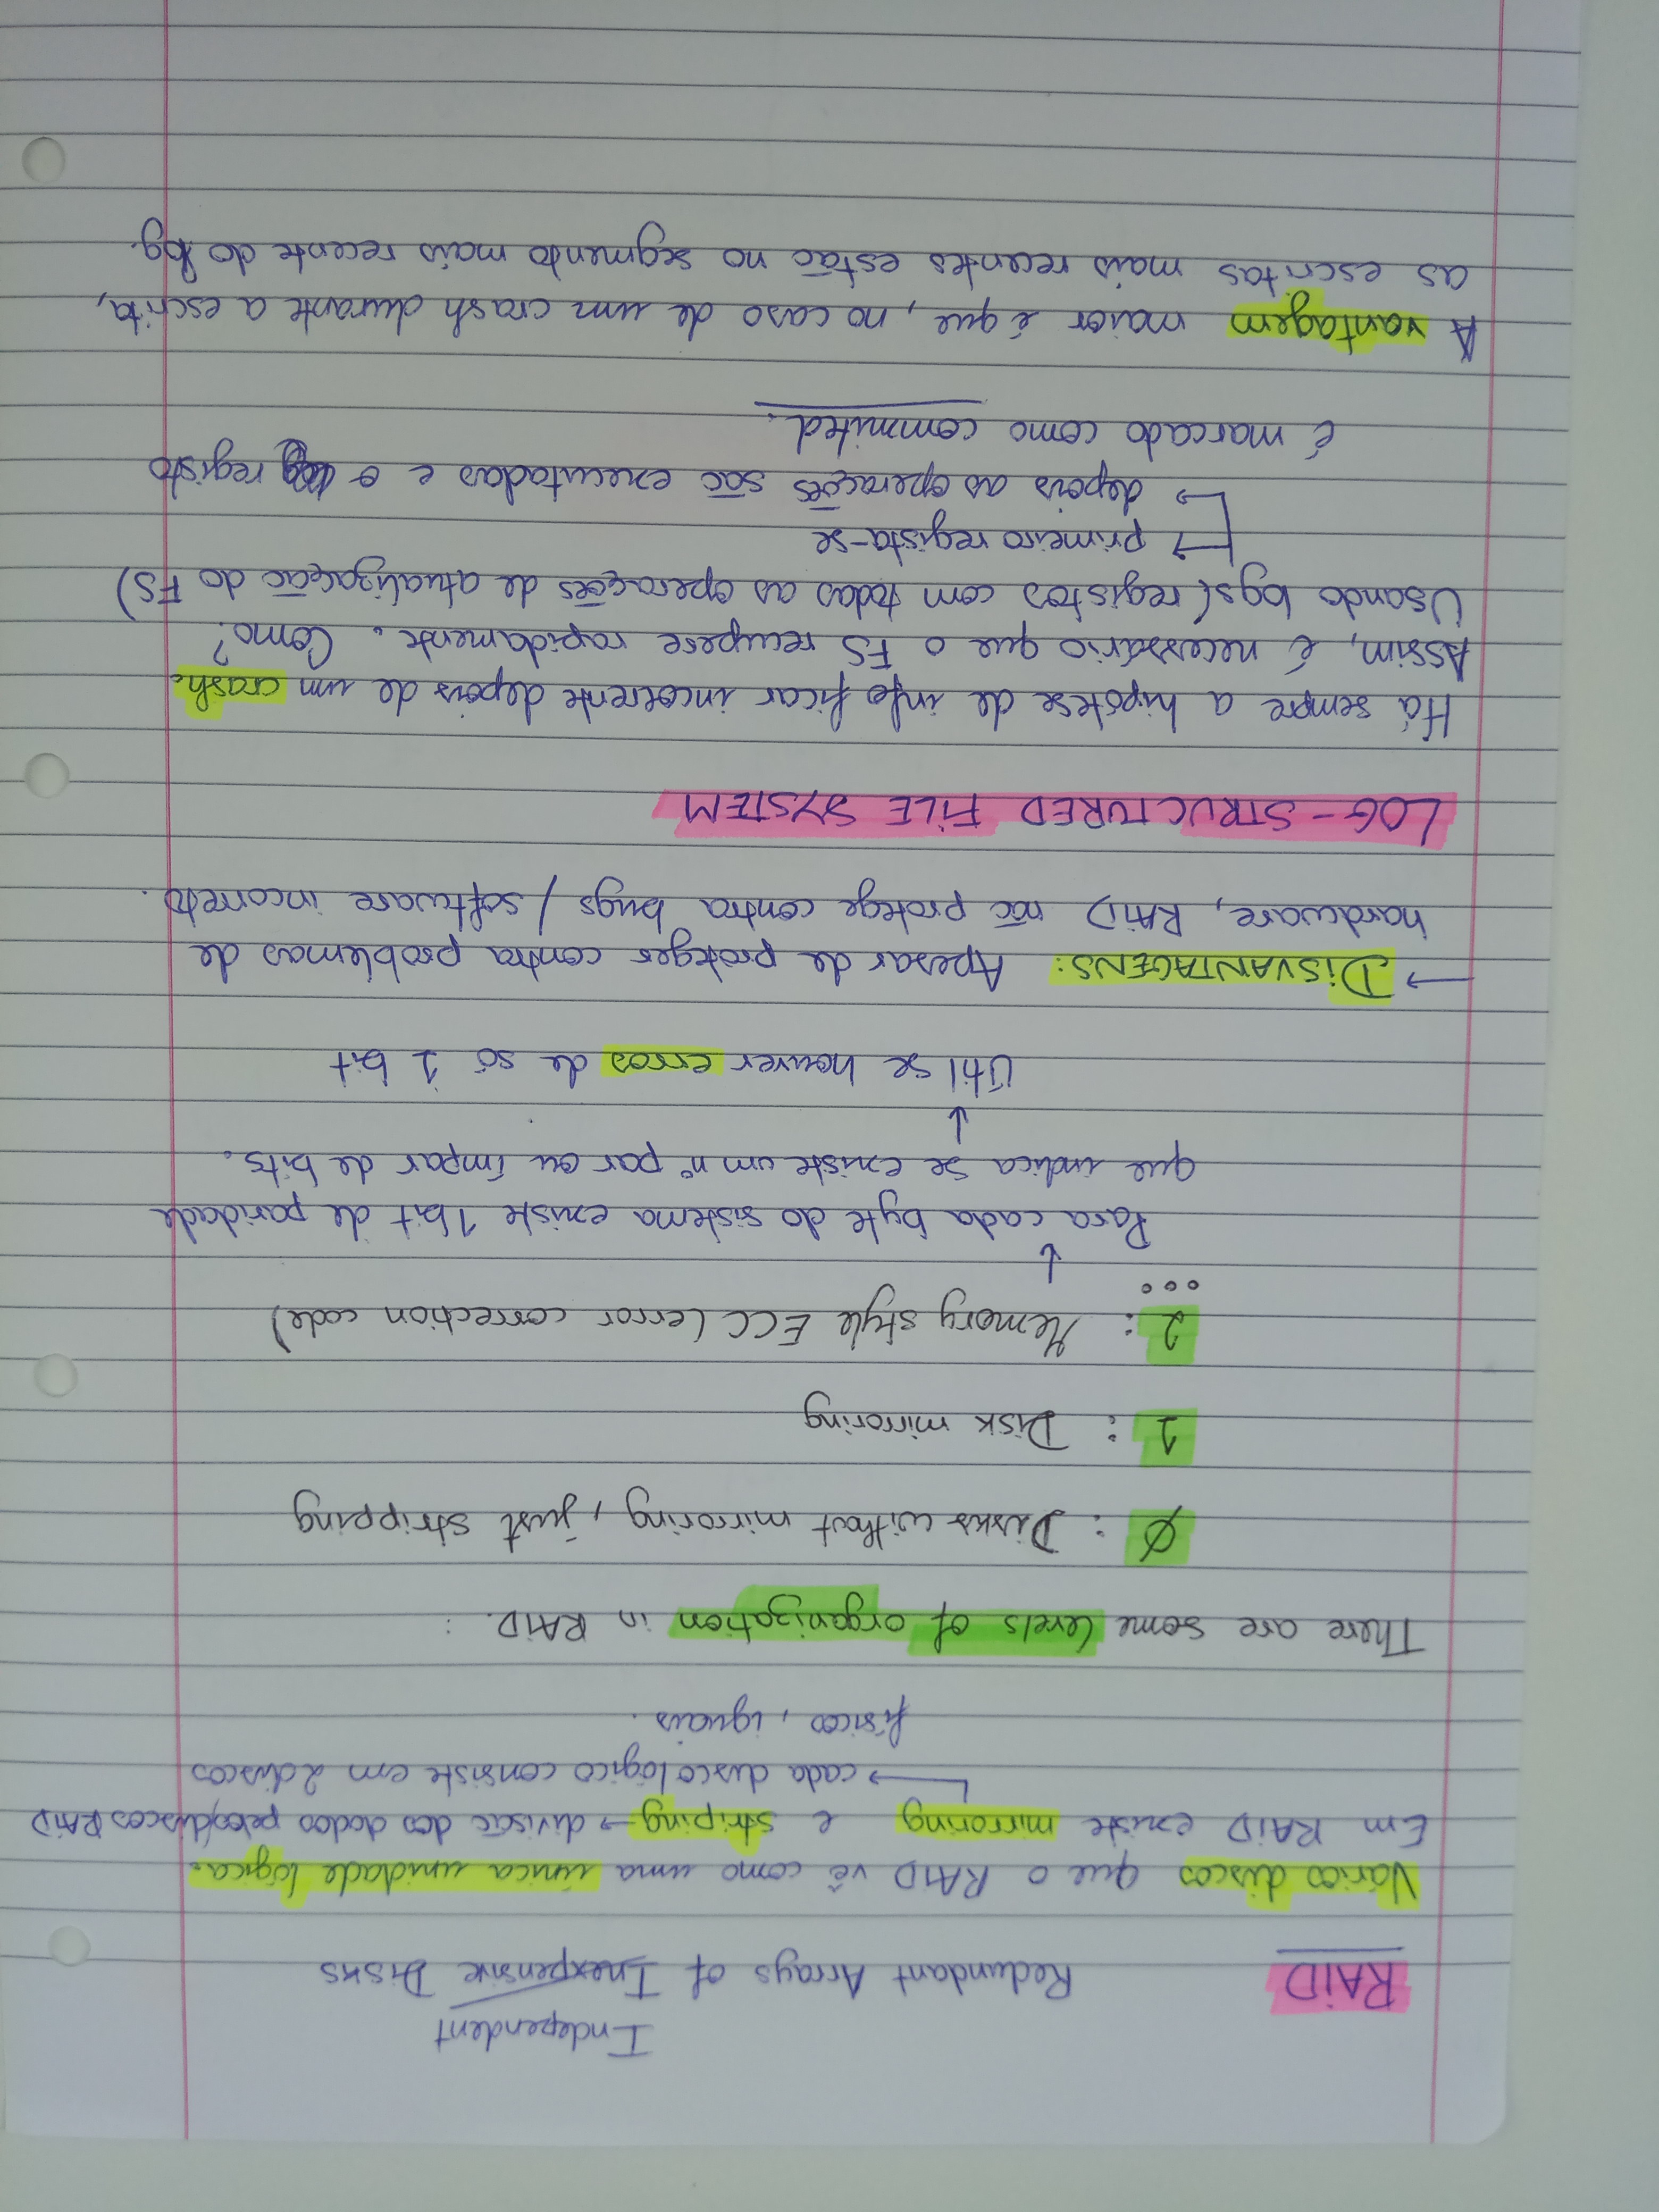 Independent
RAiD Redundant Arrays of Inexpensive Disks
Vários discos que o RAiD vê como uma única unidade lógica.
Em RAiD existe mirroring e striping → divisão dos dados pelos discos RAiD
→ cada disco lógico consiste em 2 discos
físicos, iguais.
There are some levels of organization in RAiD. :
0 : Disks without mirroring, just stripping
1 : Disk mirroring
2 : Memory style ECC (error correction code)
...
↓
Para cada byte do sistema existe 1 bit de paridade
que indica se existe um nº par ou ímpar de bits.
↓
Útil se houver erros de só 1 bit
→ DiSVANTAGENS: Apesar de proteger contra problemas de
hardware, RAiD não protege contra bugs / software incorreto.
LOG-STRUCTURED FiLE SYSTEM
Há sempre a hipótese de info ficar incoerente depois de um crash.
Assim, é necessário que o FS recupere rapidamente. Como?
Usando logs (registos com todas as operações de atualização do FS)
→ primeiro regista-se
→ depois as operações são executadas e o registo
é marcado como commited.
A vantagem maior é que, no caso de um crash durante a escrita,
as escritas mais recentes estão no segmento mais recente do log.